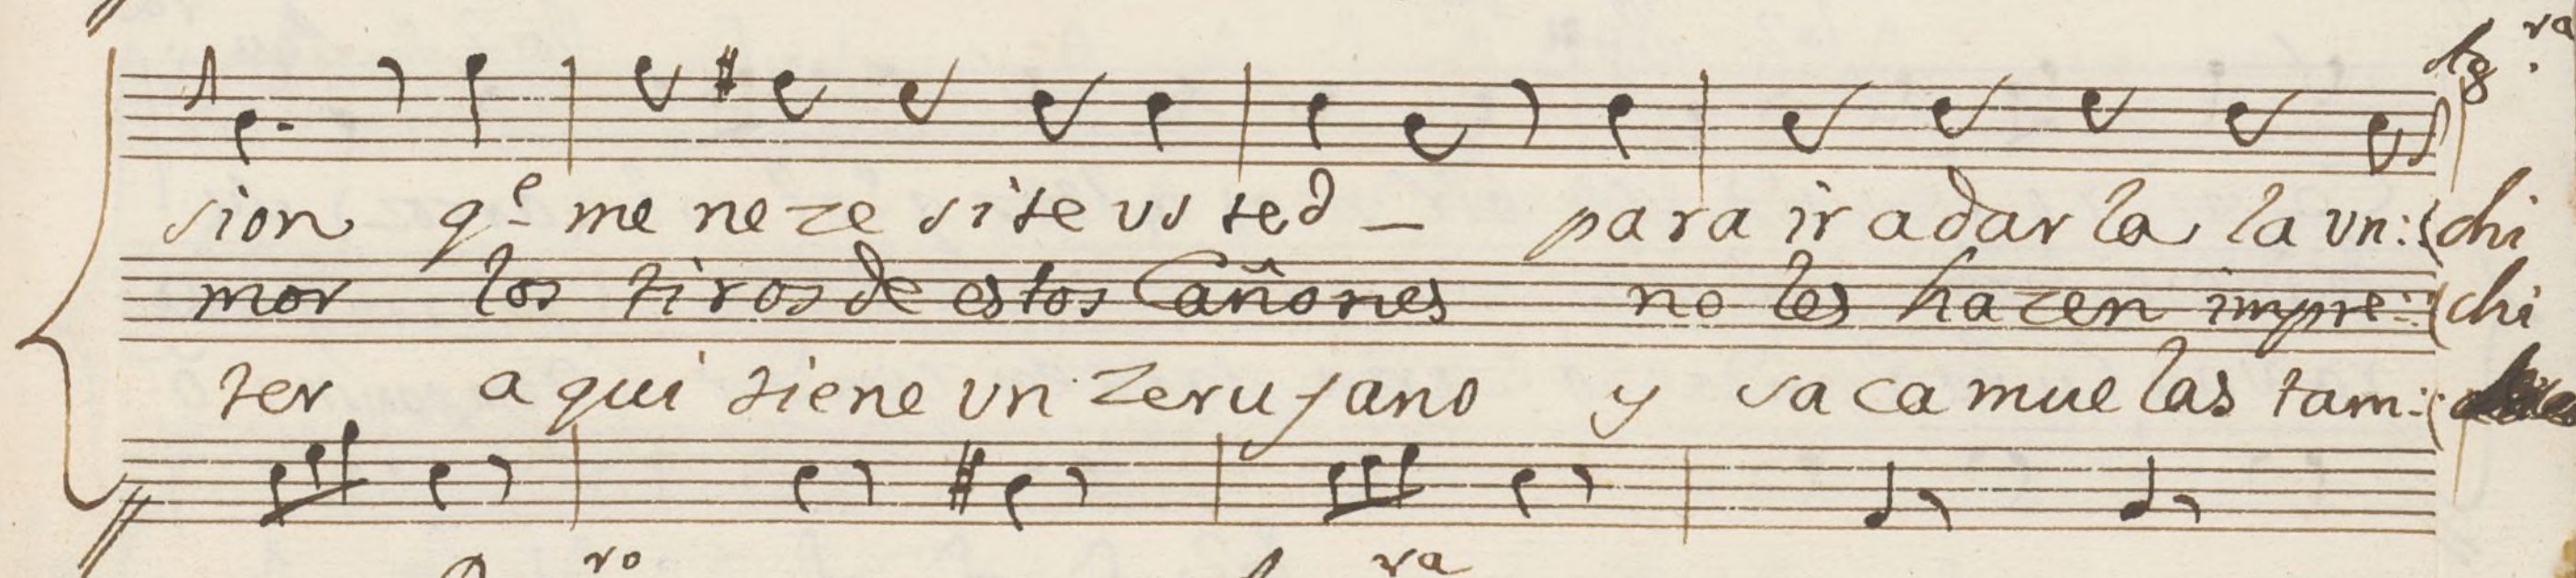 ra
sion q.e me ne ze si te us ted — para ir a dar la la un: chi
mor los tiros de estos Cañones no les hazen impre: chi
ter a qui tiene un zerujano y saca muelas tam:
ro ra